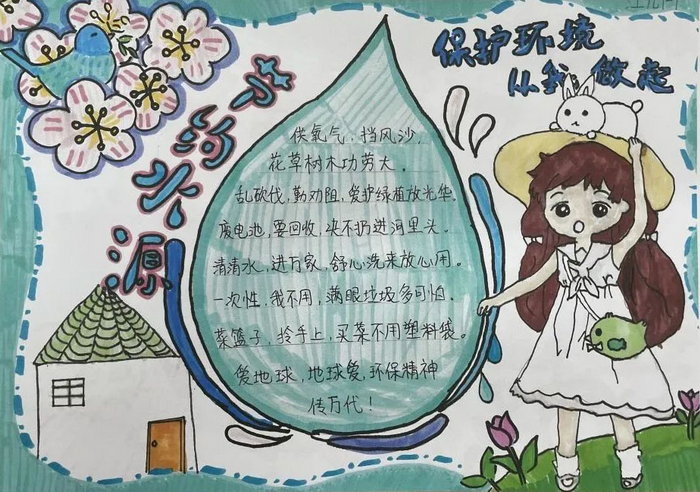 节约水源
保护环境
从我做起
供氧气,挡风沙,
花草树木功劳大。
乱砍伐,勤劝阻,爱护绿植放光华。
废电池,要回收,决不扔进河里头。
清清水,进万家,舒心洗来放心用。
一次性,我不用,满眼垃圾多可怕。
菜篮子,拎手上,买菜不用塑料袋。
爱地球,地球爱,环保精神
传万代!